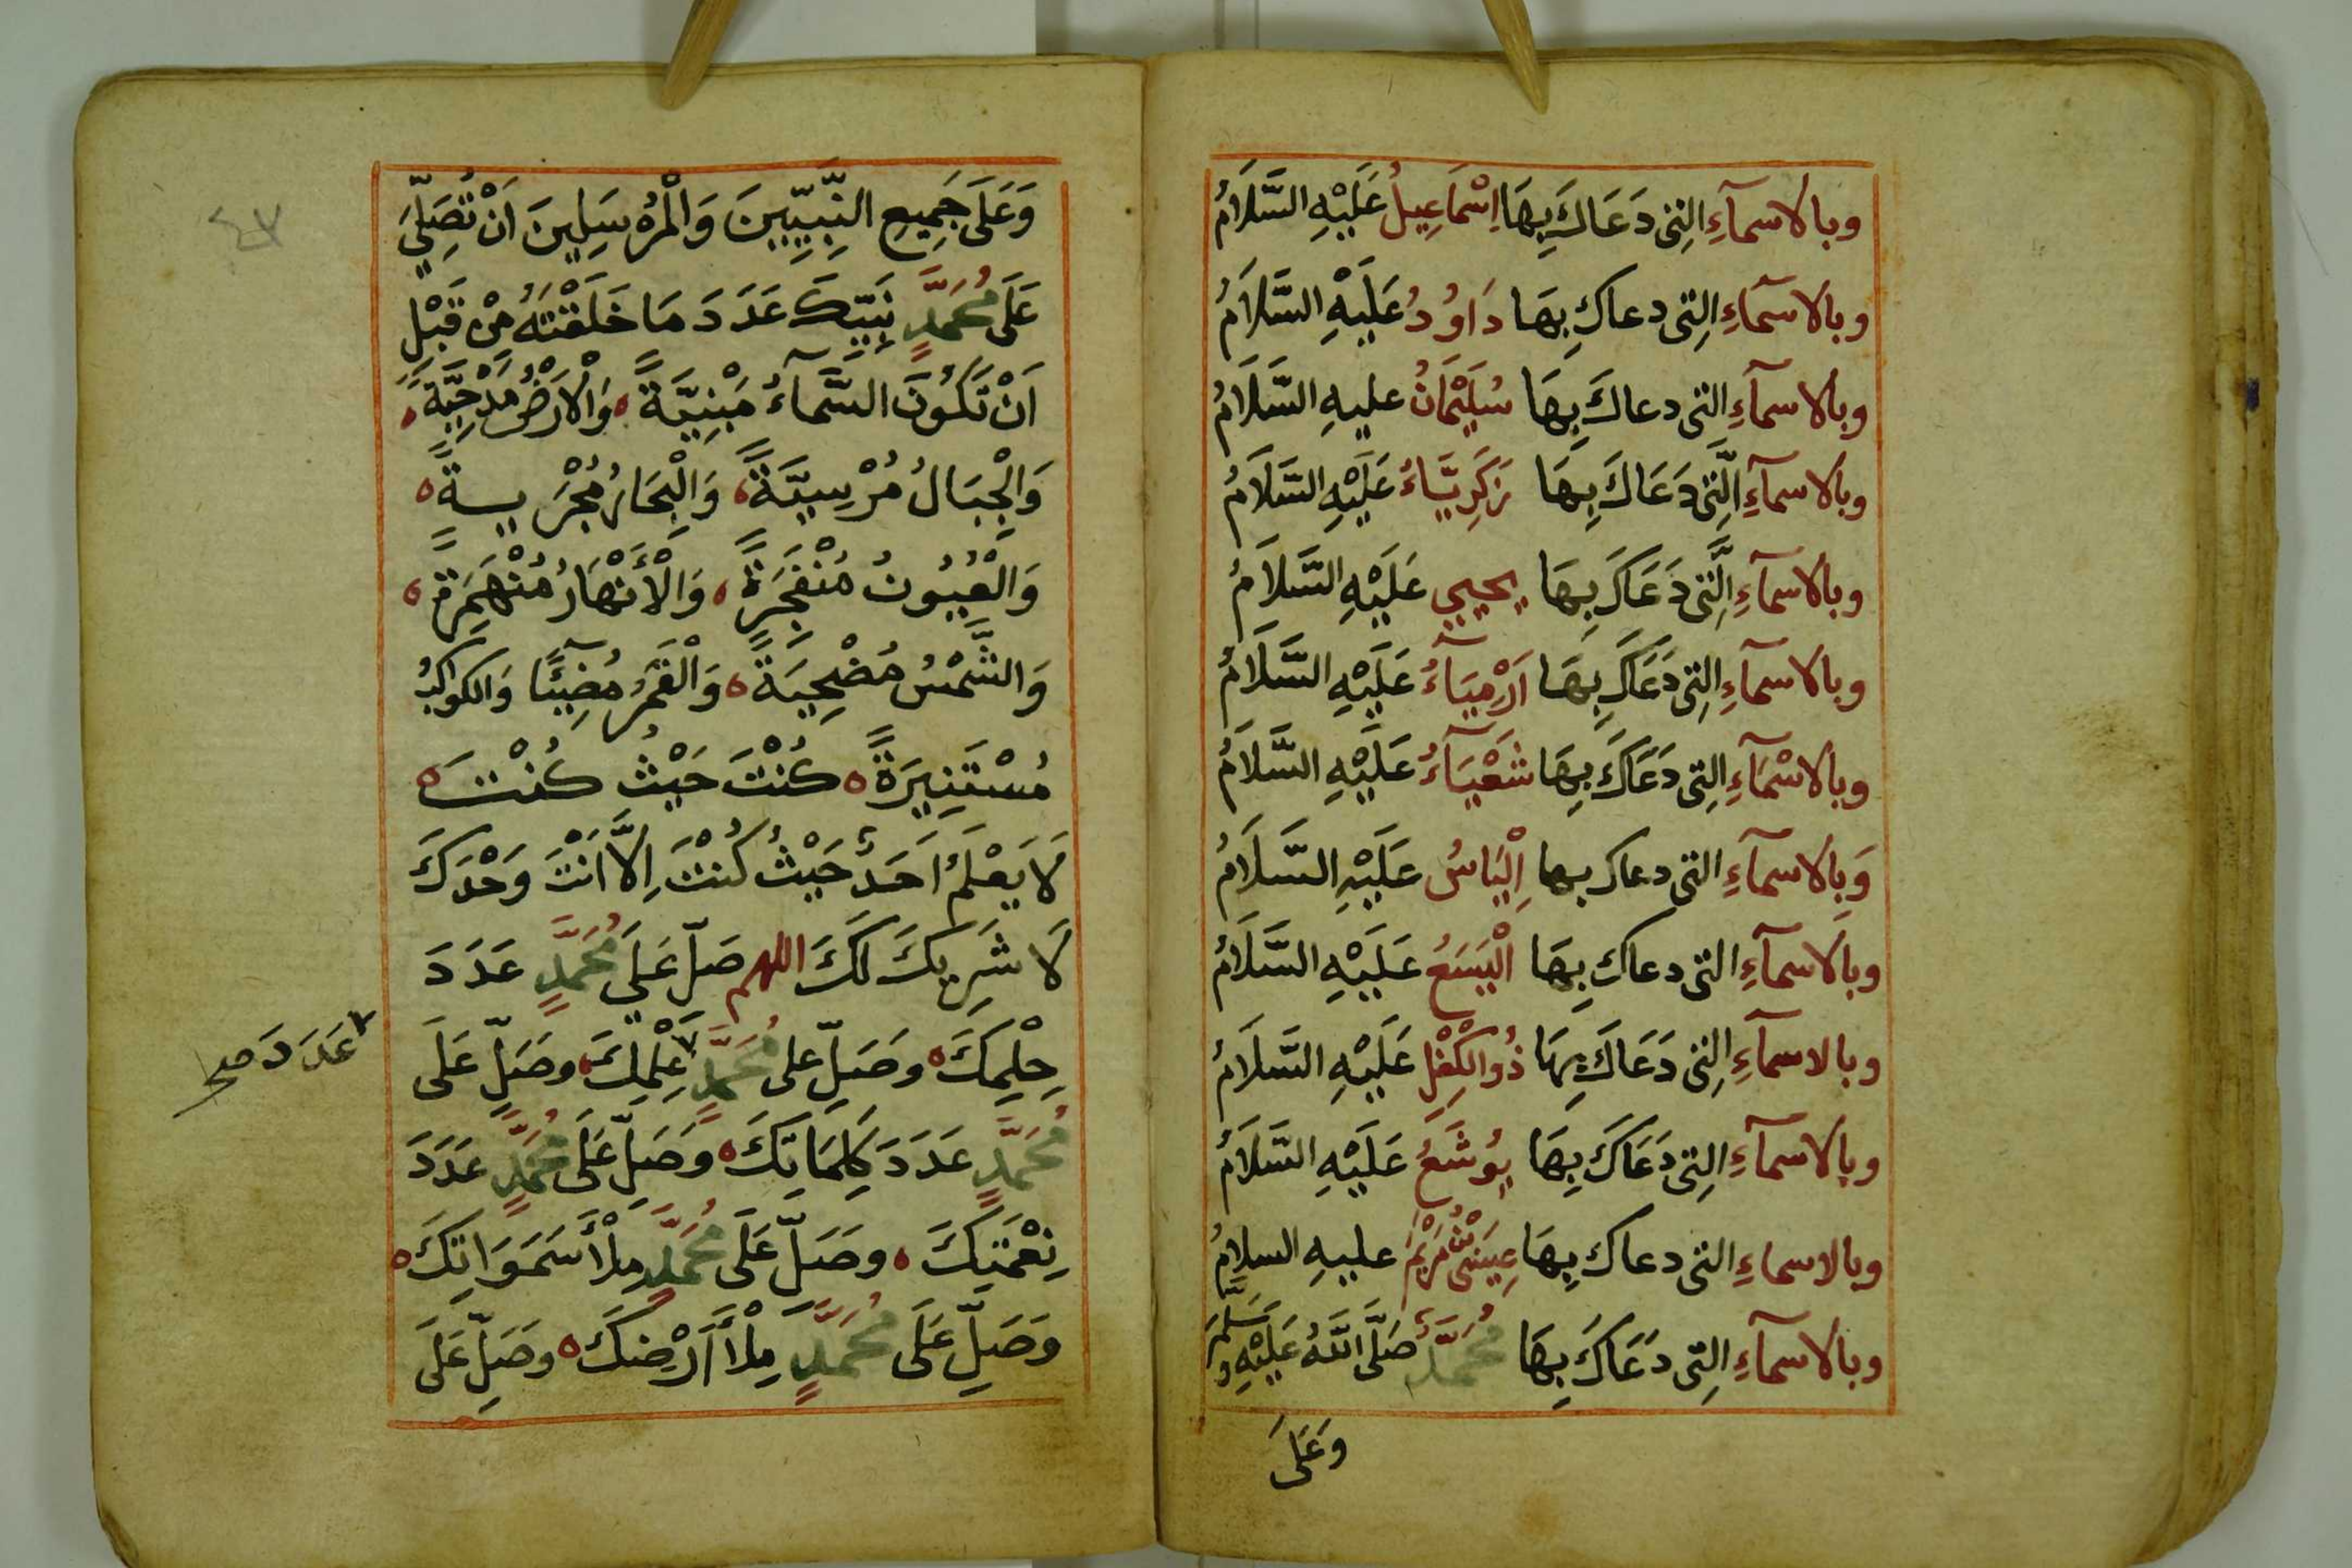 وبالاسمآءِ التِى دَعَاكَ بِهَا اِسْمَاعِيلُ عَلَيْهِ السَّلَامُ
وبالاسمآءِ التِى دعاكَ بِهَا دَاوُدُ عَلَيْهِ السَّلَامُ
وبالاسمآءِ التى دعاكَ بِهَا سُلَيْمَانُ عليهِ السَّلَامُ
وبالاسمآءِ الَّتِى دَعَاكَ بِهَا زَكَرِيَّاءُ عَلَيْهِ السَّلَامُ
وبالاسمآءِ الَّتِى دَعَاكَ بِهَا يحيي عَلَيْهِ السَّلَامُ
وبالاسمآءِ التِى دَعَاكَ بِهَا اَرْمِيَآءُ عَلَيْهِ السَّلَامُ
وبالاسْمَآءِ التِى دَعَاكَ بِهَا شَعْيَآءُ عَلَيْهِ السَّلَامُ
وَبالاسمآءِ التى دعاك بها اِلْيَاسُ عَلَيْهِ السَّلَامُ
وبالاسمآءِ التى دعاك بِهَا الْيَسَعُ عَلَيْهِ السَّلَامُ
وبالاسمآءِ التِى دَعَاكَ بِهَا ذُوالْكِفْلِ عَلَيْهِ السَّلَامُ
وبالاسمآءِ التِى دَعَاكَ بِهَا يُوشَعُ عَلَيْهِ السَّلَامُ
وبالاسماءِ التى دعاكَ بِهَا عِيسَى بْنُ مَرْيَمَ عليهِ السلامُ
وبالاسمآءِ التِى دَعَاكَ بِهَا مُحَمَّدٌ صَلَّى اللَّهُ عَلَيْهِ وَسَلَّمَ
وَعَلَى
٤٧
وَعَلَى جَمِيعِ النَّبِيِّينَ وَالْمُرْسَلِينَ اَنْ تُصَلِّيَ
عَلَى مُحَمَّدٍ نَبِيِّكَ عَدَدَ مَا خَلَقْتَهُ مِنْ قَبْلِ
اَنْ تَكُونَ السَّمَآءُ مَبْنِيَّةً وَالْاَرْضُ مَدْحِيَّةً
وَالْجِبَالُ مُرْسِيَّةً وَالْبِحَارُ مُجْرَيــةً
وَالْعُيُونُ مُنْفَجِرَةً وَالْأَنْهَارُ مُنْهَمِرَةً
وَالشَّمْسُ مُضْحِيَةً وَالْقَمَرُ مُضِيْئًا وَالكواكبُ
مُسْتَنِيرَةً كُنْتَ حَيْثُ كُنْتَ
لَا يَعْلَمُ اَحَدٌ حَيْثُ كُنْتَ اِلَّا اَنْتَ وَحْدَكَ
لَا شَرِيكَ لَكَ اللهم صَلِّ عَلَي مُحَمَّدٍ عَدَدَ
حِلْمِكَ وصَلِّ على مُحَمَّدٍ عِلْمِكَ وصَلِّ عَلَى
عَدَدَ صح
مُحَمَّدٍ عَدَدَ كَلِمَاتِكَ وَصَلِّ عَلَى مُحَمَّدٍ عَدَدَ
نِعْمَتِكَ وصَلِّ عَلَى مُحَمَّدٍ مِلْأَ سَمَوَاتِكَ
وَصَلِّ عَلَى مُحَمَّدٍ مِلْأَ اَرْضِكَ وصَلِّ عَلَى